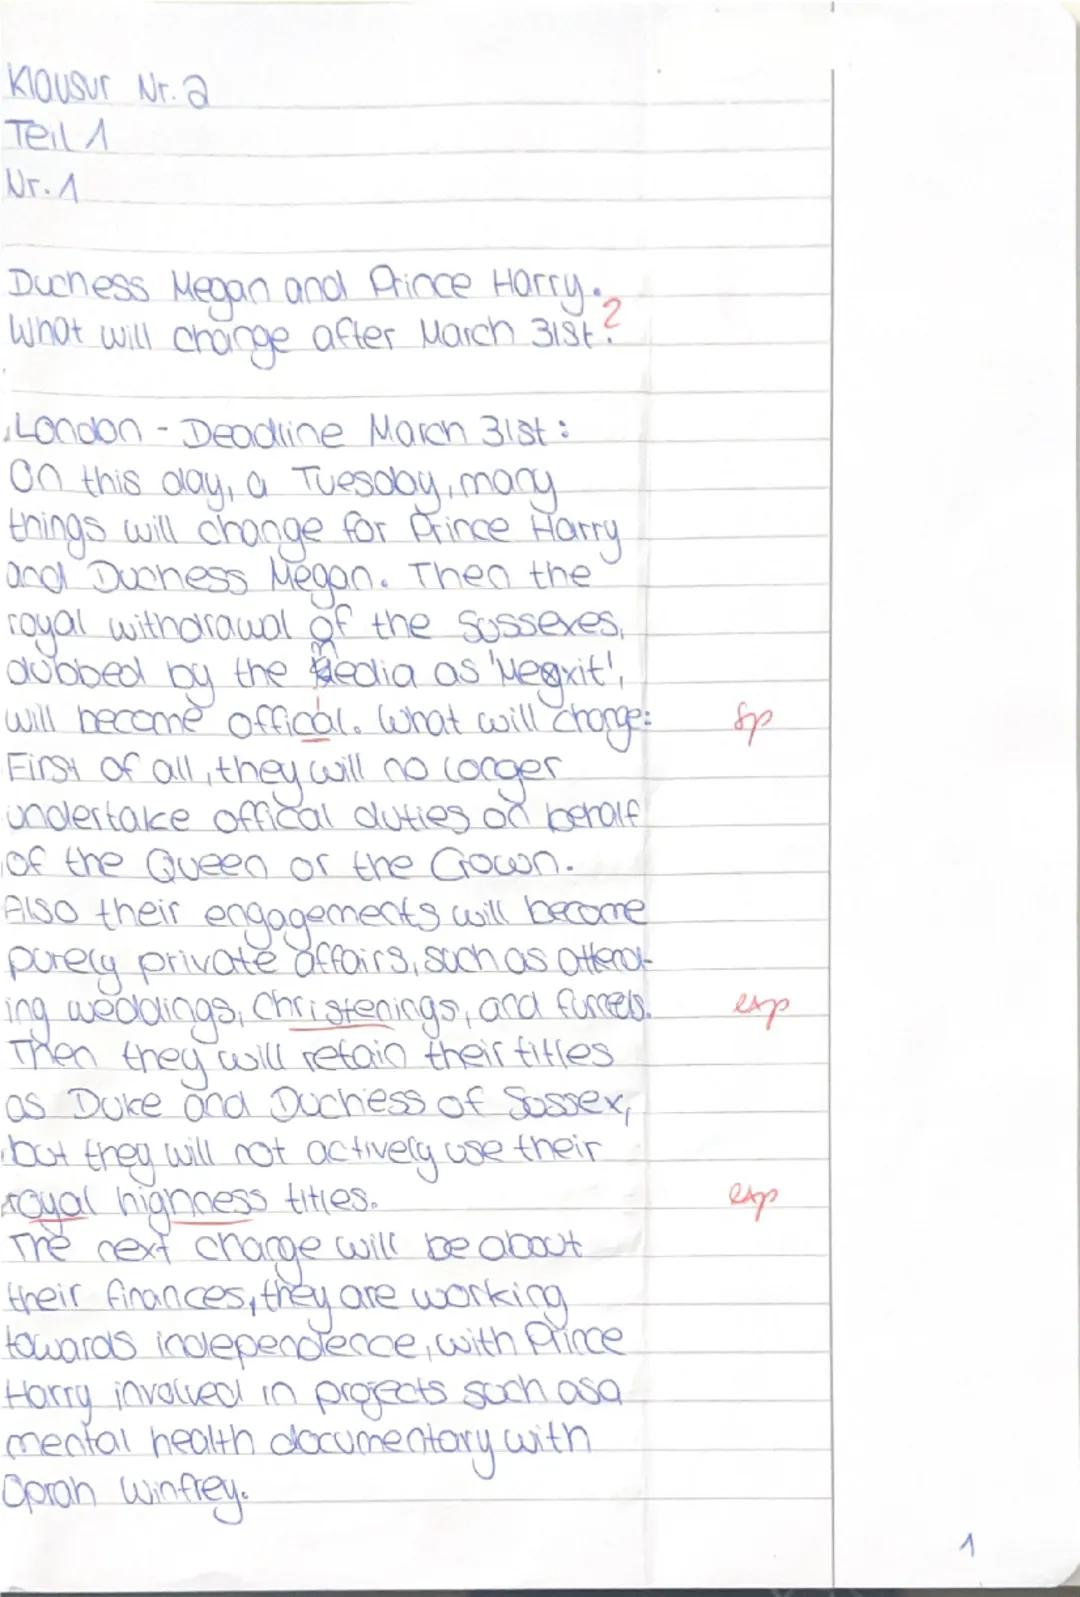 Klausur Nr. 2
Teil 1
Nr. 1
Duchess Megan and Prince Harry.
What will change after March 31st. ?
London - Deadline March 31st:
On this day, a Tuesday, many
things will change for Prince Harry
and Duchess Megan. Then the
royal withdrawal of the Sussexes,
dubbed by the media as 'Megxit',
will become offical. What will change: sp
First of all, they will no longer
undertake offical duties on behalf
of the Queen or the Crown.
Also their engagements will become
purely private affairs, such as attend-
ing weddings, Christenings, and funrels. exp
Then they will retain their titles
as Duke and Duchess of Sussex,
but they will not actively use their
royal highness titles. exp
The next change will be about
their finances, they are working
towards independence, with Prince
Harry involved in projects such as a
mental health documentary with
Oprah Winfrey.
1